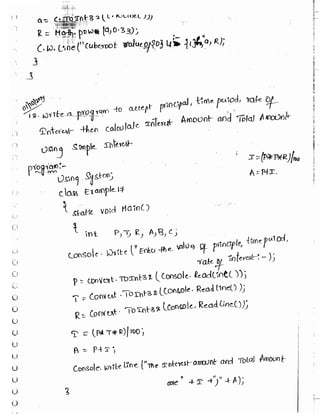 a= C.ToInt32(C.ReadLine()))
R = Math.pow(a,0.33);
C.W.Line("Cuberoot value of {0} is {1}",a,R);
}
}
18. Write a program to accept principal, time period, rate of
Interest then calculate Interest Amount and Total Amount
Using Simple Interest
I=(P*T*R)/100
A=P+I.
program:-
Using System;
class Example18
{ static void Main()
{ int P,T,R,A,B,c;
Console.Write("Enter the values of principle, time period,
rate of interest:-);
P= Convert.ToInt32(Console.ReadLine());
T = Convert.ToInt32(Console.ReadLine());
R= Convert.ToInt32(Console.ReadLine());
I = (P*T*R)/100;
A = P+I;
Console.WriteLine("The Interest amount and Total Amount
are" + I +"," + A);
}